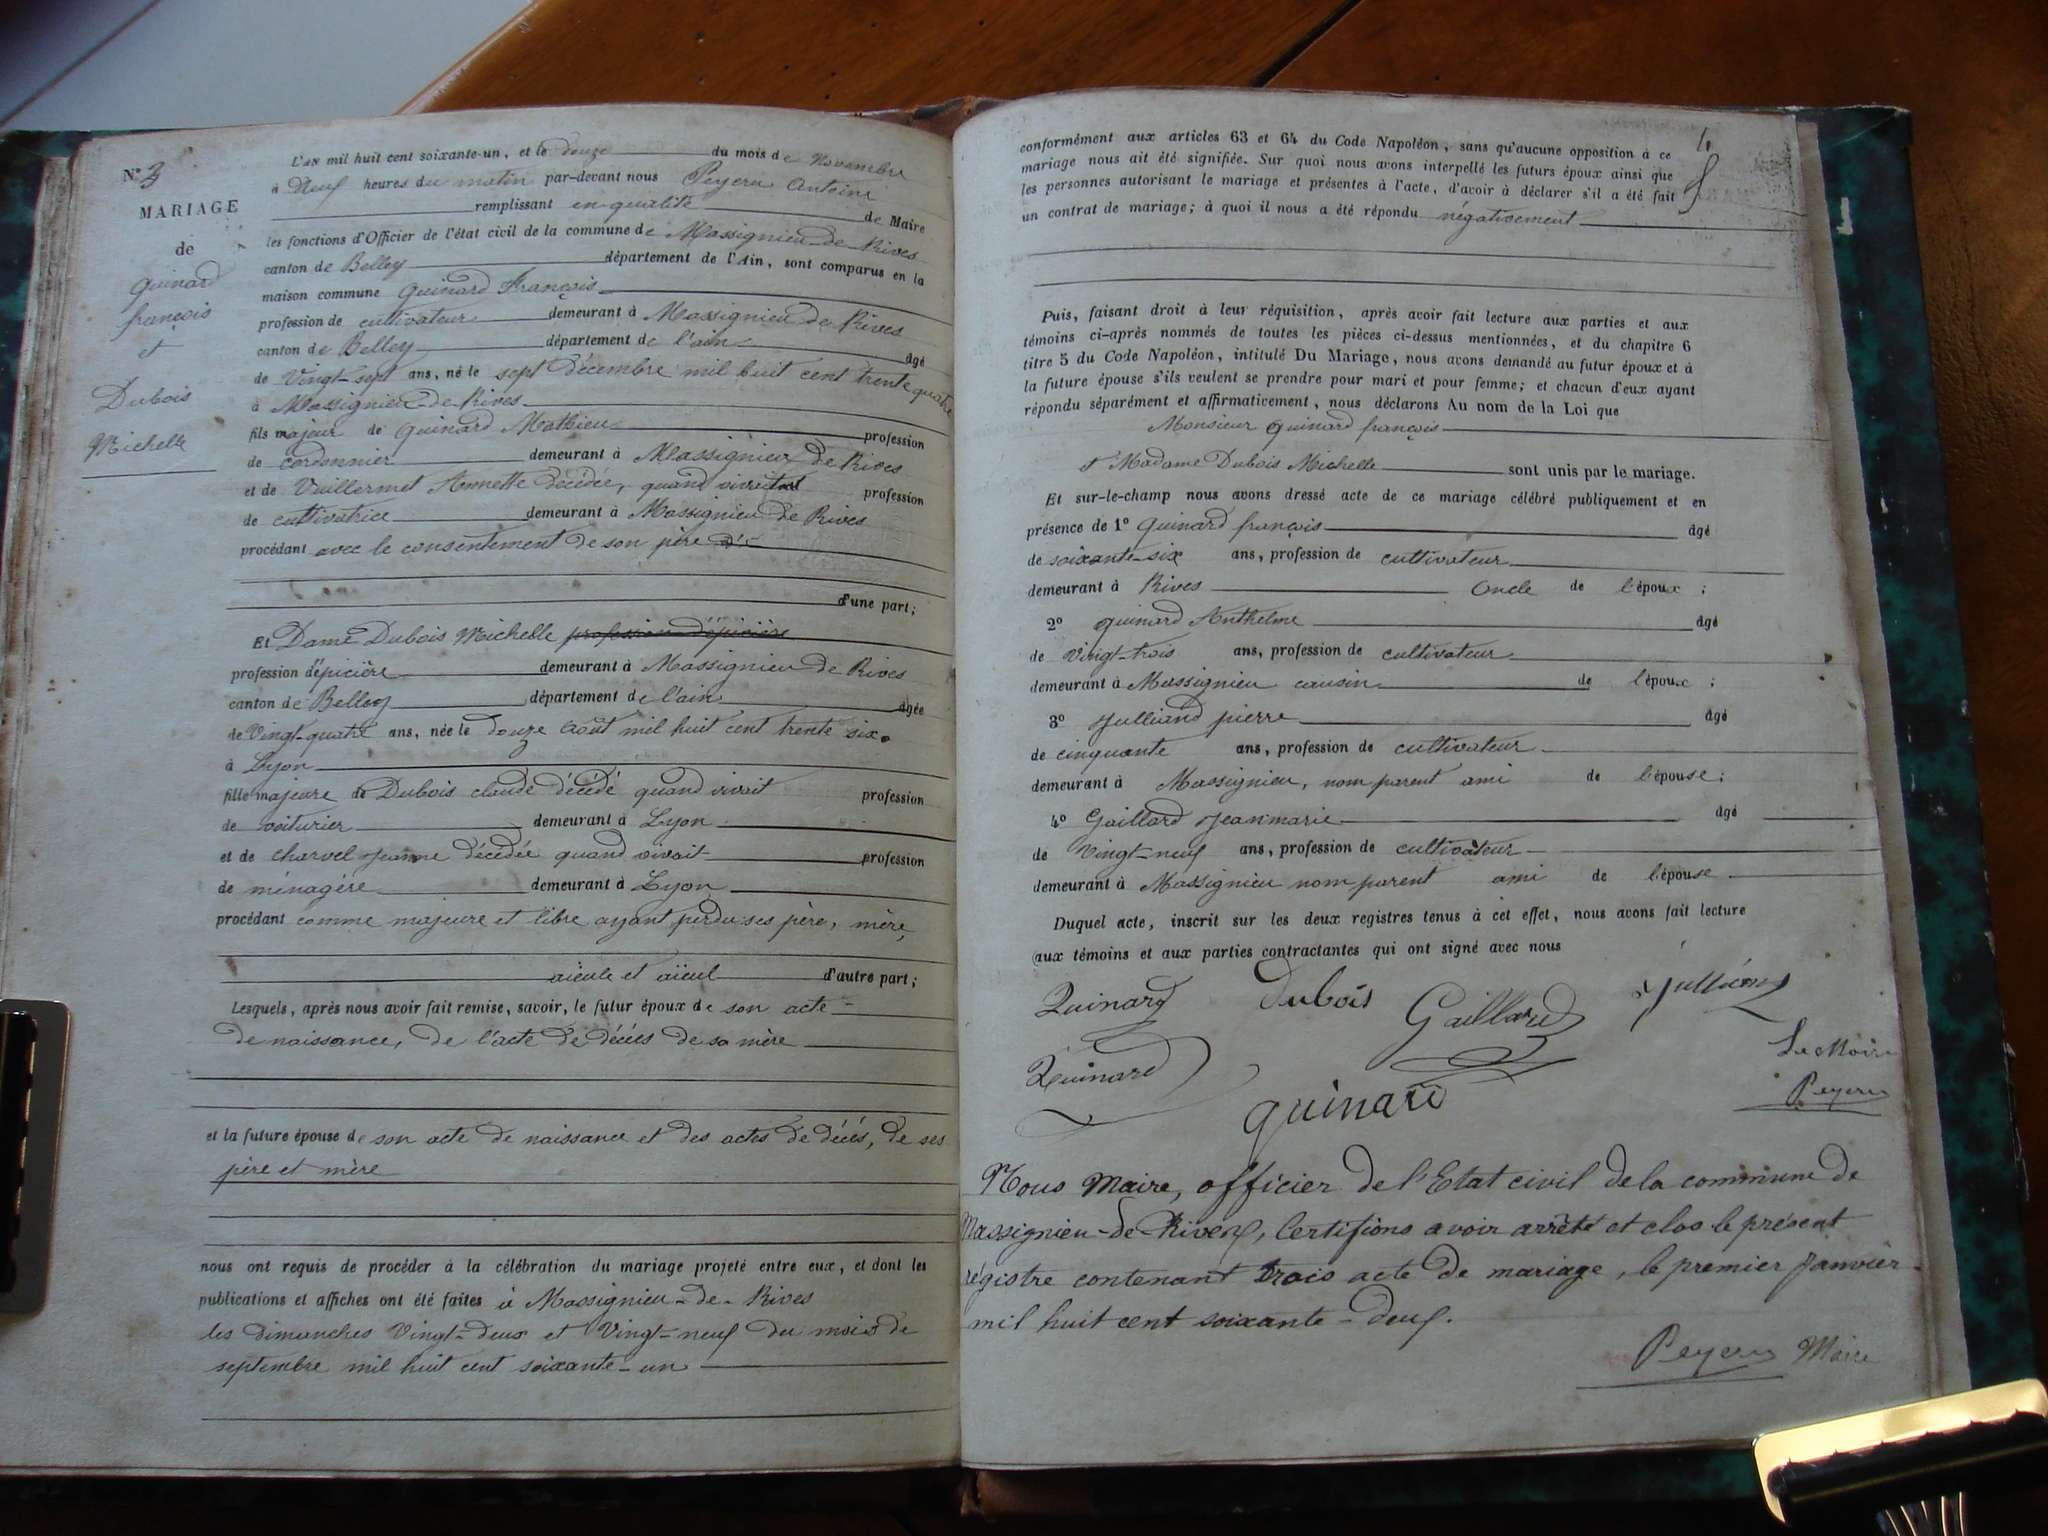 N° 3
MARIAGE
de
Quinard
françois
et
Dubois
Michelle
L'AN mil huit cent soixante-un, et le douze du mois de Novembre
à Neuf heures du matin par-devant nous Peyeru Antoine
remplissant en qualité de Maire
les fonctions d'Officier de l'état civil de la commune de Massignieu-de-Rives
canton de Belley département de l'Ain, sont comparus en la
maison commune Quinard François
profession de cultivateur demeurant à Massignieu de Rives
canton de Belley département de l'ain âgé
de Vingt-sept ans, né le sept décembre mil huit cent trente quatre
à Massignieu-de-Rives
fils majeur de Quinard Mathieu profession
de cordonnier demeurant à Massignieu de Rives
et de Vuillermet Annette décédée, quand vivait profession
de cultivatrice demeurant à Massignieu de Rives
procédant avec le consentement de son père
d'une part;
Et Dame Dubois Michelle profession d'épicière
profession d'épicière demeurant à Massignieu de Rives
canton de Belley département de l'ain âgée
de Vingt-quatre ans, née le douze Août mil huit cent trente six.
à Lyon
fille majeure de Dubois claude décédé quand vivait profession
de voiturier demeurant à Lyon
et de Charvel Jeanne décédée quand vivait profession
de ménagère demeurant à Lyon
procédant comme majeure et libre ayant perdu ses père, mère,
aïeule et aïeul d'autre part;
Lesquels, après nous avoir fait remise, savoir, le futur époux de son acte
de naissance, de l'acte de décès de sa mère
et la future épouse de son acte de naissance et des actes de décès, de ses
père et mère
nous ont requis de procéder à la célébration du mariage projeté entre eux, et dont les
publications et affiches ont été faites à Massignieu-de-Rives
les dimanches Vingt-deux et Vingt-neuf du mois de
septembre mil huit cent soixante-un
conformément aux articles 63 et 64 du Code Napoléon, sans qu'aucune opposition à ce
mariage nous ait été signifiée. Sur quoi nous avons interpellé les futurs époux ainsi que
les personnes autorisant le mariage et présentes à l'acte, d'avoir à déclarer s'il a été fait
un contrat de mariage; à quoi il nous a été répondu négativement
Puis, faisant droit à leur réquisition, après avoir fait lecture aux parties et aux
témoins ci-après nommés de toutes les pièces ci-dessus mentionnées, et du chapitre 6
titre 5 du Code Napoléon, intitulé Du Mariage, nous avons demandé au futur époux et à
la future épouse s'ils veulent se prendre pour mari et pour femme; et chacun d'eux ayant
répondu séparément et affirmativement, nous déclarons Au nom de la Loi que
Monsieur Quinard françois
et Madame Dubois Michelle sont unis par le mariage.
Et sur-le-champ nous avons dressé acte de ce mariage célébré publiquement et en
présence de 1° Quinard françois âgé
de soixante-six ans, profession de cultivateur
demeurant à Rives Oncle de l'époux ;
2° Quinard Anthelme âgé
de Vingt-trois ans, profession de cultivateur
demeurant à Massignieu cousin de l'époux ;
3° Julliand pierre âgé
de cinquante ans, profession de cultivateur
demeurant à Massignieu, nom parent ami de l'épouse;
4° Gaillard Jeanmarie âgé
de Vingt-neuf ans, profession de cultivateur
demeurant à Massignieu nom parent ami de l'épouse
Duquel acte, inscrit sur les deux registres tenus à cet effet, nous avons fait lecture
aux témoins et aux parties contractantes qui ont signé avec nous
Quinard Dubois Gaillard
Le Maire
Quinard Peyeru
quinard
Nous Maire, officier de l'Etat civil de la commune de
Massignieu-de-Rives, Certifions avoir arrêté et clos le présent
régistre contenant trois acte de mariage, le premier Janvier
mil huit cent soixante-deux.
Peyeru Maire